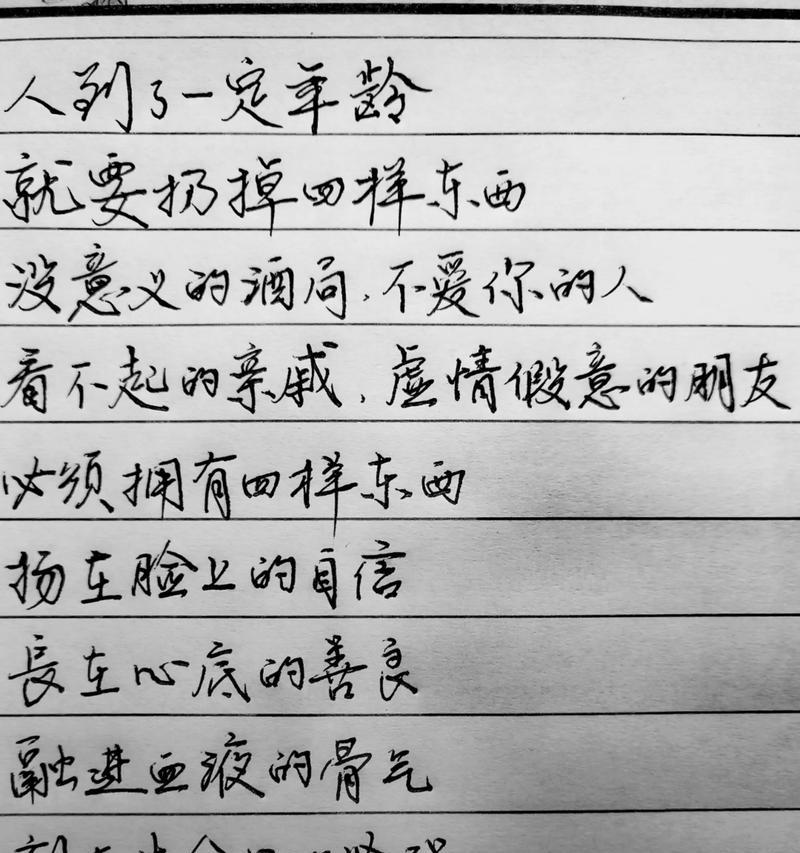 人到了一定年龄
就要扔掉四样东西
没意义的酒局,不爱你的人
看不起的亲戚,虚情假意的朋友
必须拥有四样东西
扬在脸上的自信
長在心底的善良
融进血液的骨气